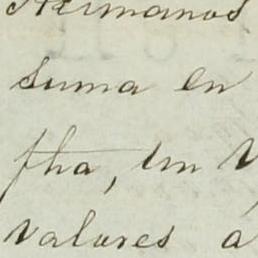 Hermanos
suma en
fha, en
valores a